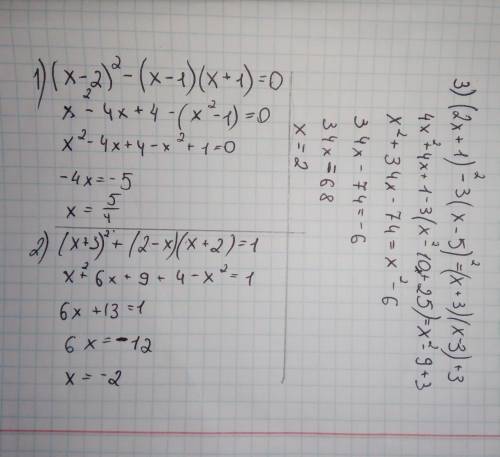 1) (x-2)² - (x-1)(x+1)=0
x² - 4x+4 - (x²-1)=0
x² - 4x+4 - x²+1=0
-4x=-5
x = 5/4
2) (x+3)² + (2-x)(x+2)=1
x² + 6x+9+4-x²=1
6x+13=1
6x=-12
x=-2
3) (2x+1)² - 3(x-5)² = (x+3)(x-3)+3
4x²+4x+1-3(x²-10x+25)=x²-9+3
x²+34x-74=x²-6
34x-74=-6
34x=68
x=2